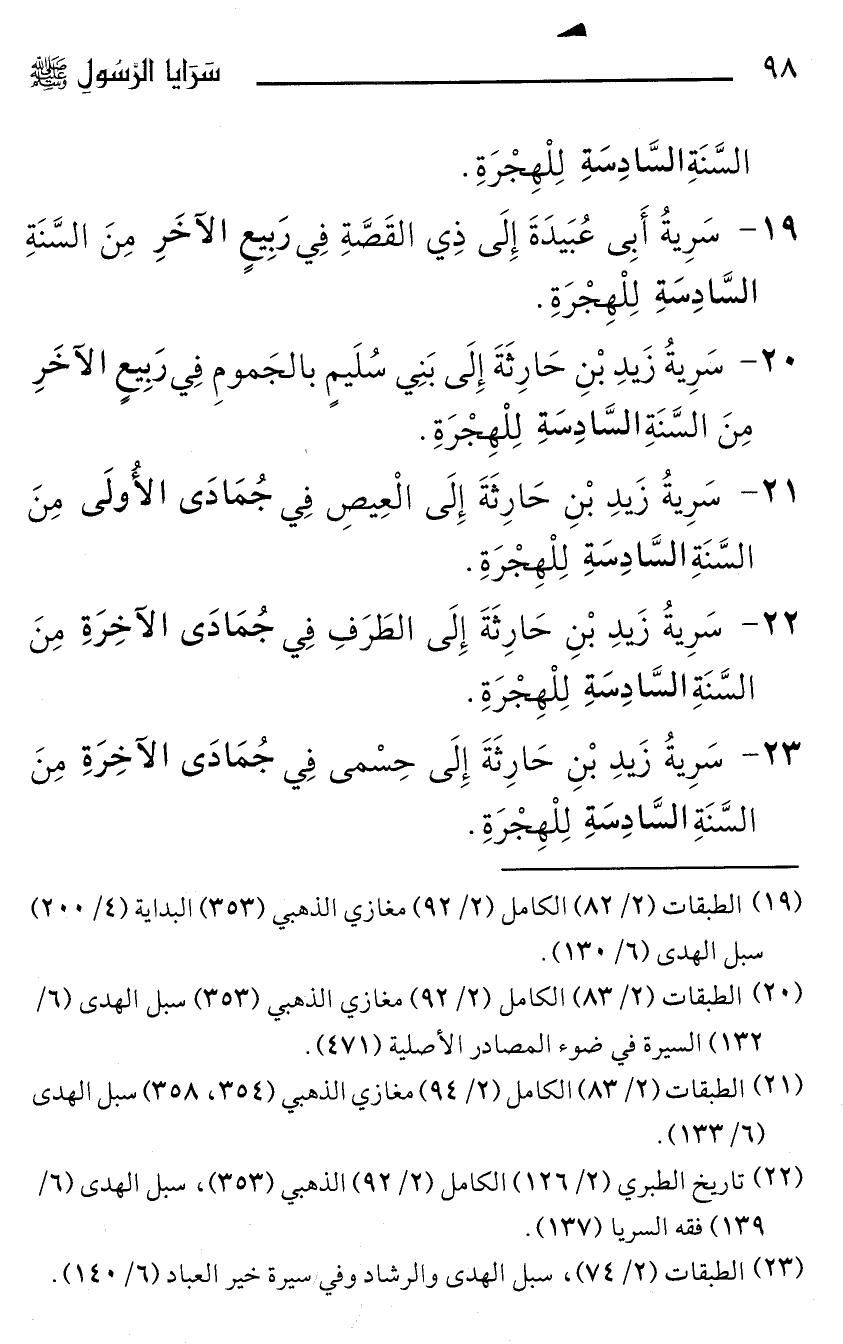 ٩٨ سَرَايا الرَّسُولِ ﷺ
السَّنَةِ السَّادِسَةِ لِلْهِجْرَةِ.
١٩- سَرِيةُ أَبِى عُبَيدَةَ إِلَى ذِي القَصَّةِ فِي رَبِيعٍ الآخَرِ مِنَ السَّنَةِ
السَّادِسَةِ لِلْهِجْرَةِ.
٢٠- سَرِيةُ زَيدِ بْنِ حَارِثَةَ إِلَى بَنِي سُلَيمٍ بالجَمومِ فِي رَبِيعٍ الآخَرِ
مِنَ السَّنَةِ السَّادِسَةِ لِلْهِجْرَةِ.
٢١- سَرِيةُ زَيدِ بْنِ حَارِثَةَ إِلَى الْعِيصِ فِي جُمَادَى الأُولَى مِنَ
السَّنَةِ السَّادِسَةِ لِلْهِجْرَةِ.
٢٢- سَرِيةُ زَيدِ بْنِ حَارِثَةَ إِلَى الطَرَفِ فِي جُمَادَى الآخِرَةِ مِنَ
السَّنَةِ السَّادِسَةِ لِلْهِجْرَةِ.
٢٣- سَرِيةُ زَيدِ بْنِ حَارِثَةَ إِلَى حِسْمى فِي جُمَادَى الآخِرَةِ مِنَ
السَّنَةِ السَّادِسَةِ لِلْهِجْرَةِ.
(١٩) الطبقات (٢/ ٨٢) الكامل (٢/ ٩٢) مغازي الذهبي (٣٥٣) البداية (٤/ ٢٠٠)
سبل الهدى (٦/ ١٣٠).
(٢٠) الطبقات (٢/ ٨٣) الكامل (٢/ ٩٢) مغازي الذهبي (٣٥٣) سبل الهدى (٦/
١٣٢) السيرة في ضوء المصادر الأصلية (٤٧١).
(٢١) الطبقات (٢/ ٨٣) الكامل (٢/ ٩٤) مغازي الذهبي (٣٥٤، ٣٥٨) سبل الهدى
(٦/ ١٣٣).
(٢٢) تاريخ الطبري (٢/ ١٢٦) الكامل (٢/ ٩٢) الذهبي (٣٥٣)، سبل الهدى (٦/
١٣٩) فقه السريا (١٣٧).
(٢٣) الطبقات (٢/ ٧٤)، سبل الهدى والرشاد وفي سيرة خير العباد (٦/ ١٤٠).